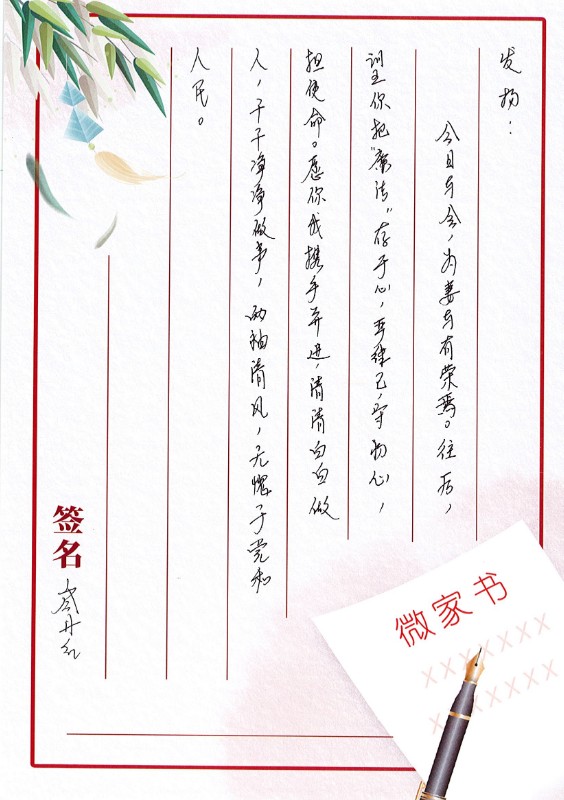 发扬：
今日与会，为妻与有荣焉。往后，
你把“廉洁”存于心，严律己，守初心，
担使命。愿你我携手并进，清清白白做
人，干干净净做事，两袖清风，无愧于党和
人民。
签名
微家书
XXXXXXX